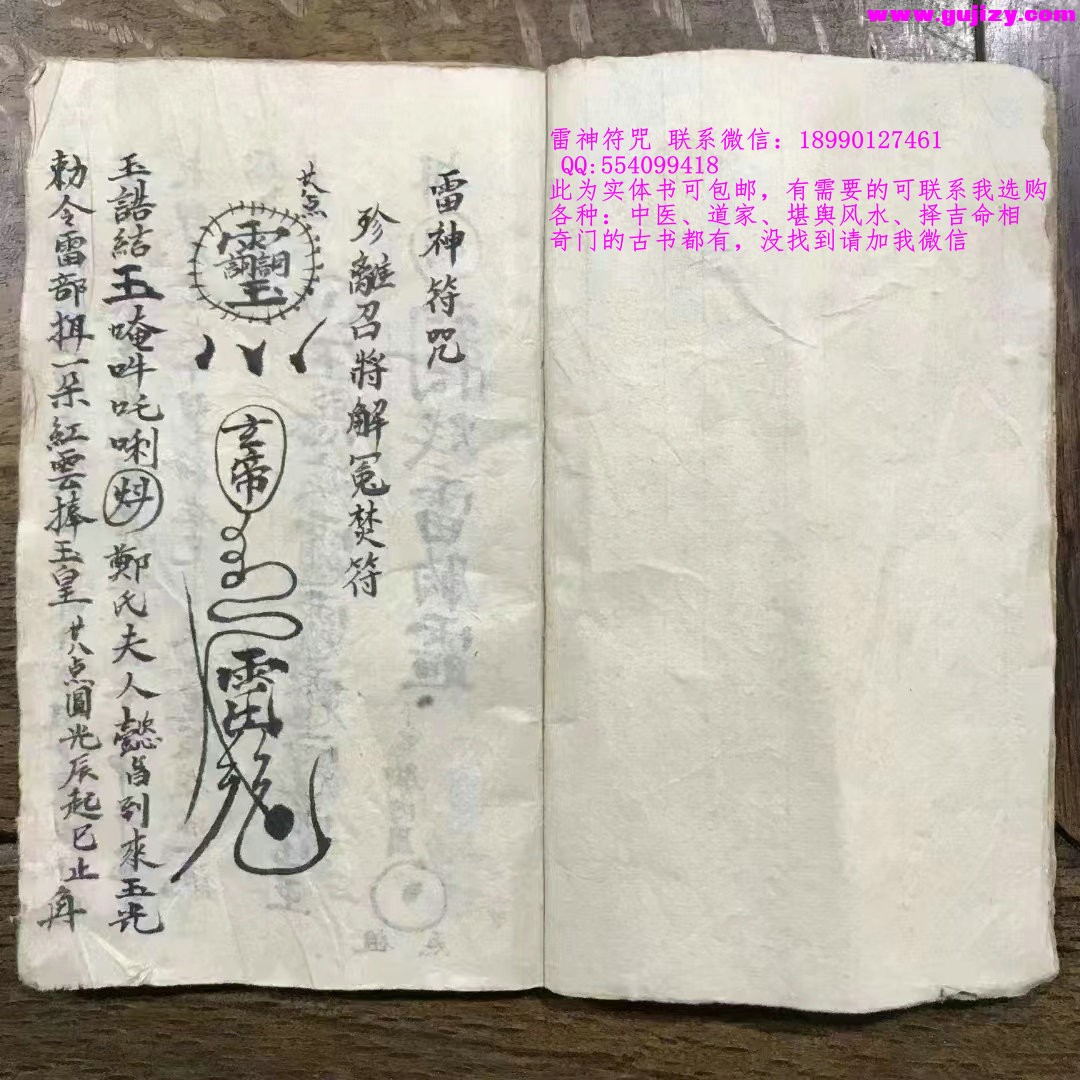 www.gujizy.com
雷神符咒 联系微信：18990127461
QQ:554099418
此为实体书可包邮，有需要的可联系我选购
各种：中医、道家、堪舆风水、择吉命相
奇门的古书都有，没找到请加我微信
雷神符咒
珍離召將解冤焚符
廿八点
玄帝
雷
玉誥結玉唵吽吒唎 鄭氏夫人懿旨到來玉光
勅令雷部揖一朵紅雲捧玉皇 廿八点圓光辰起巳止再